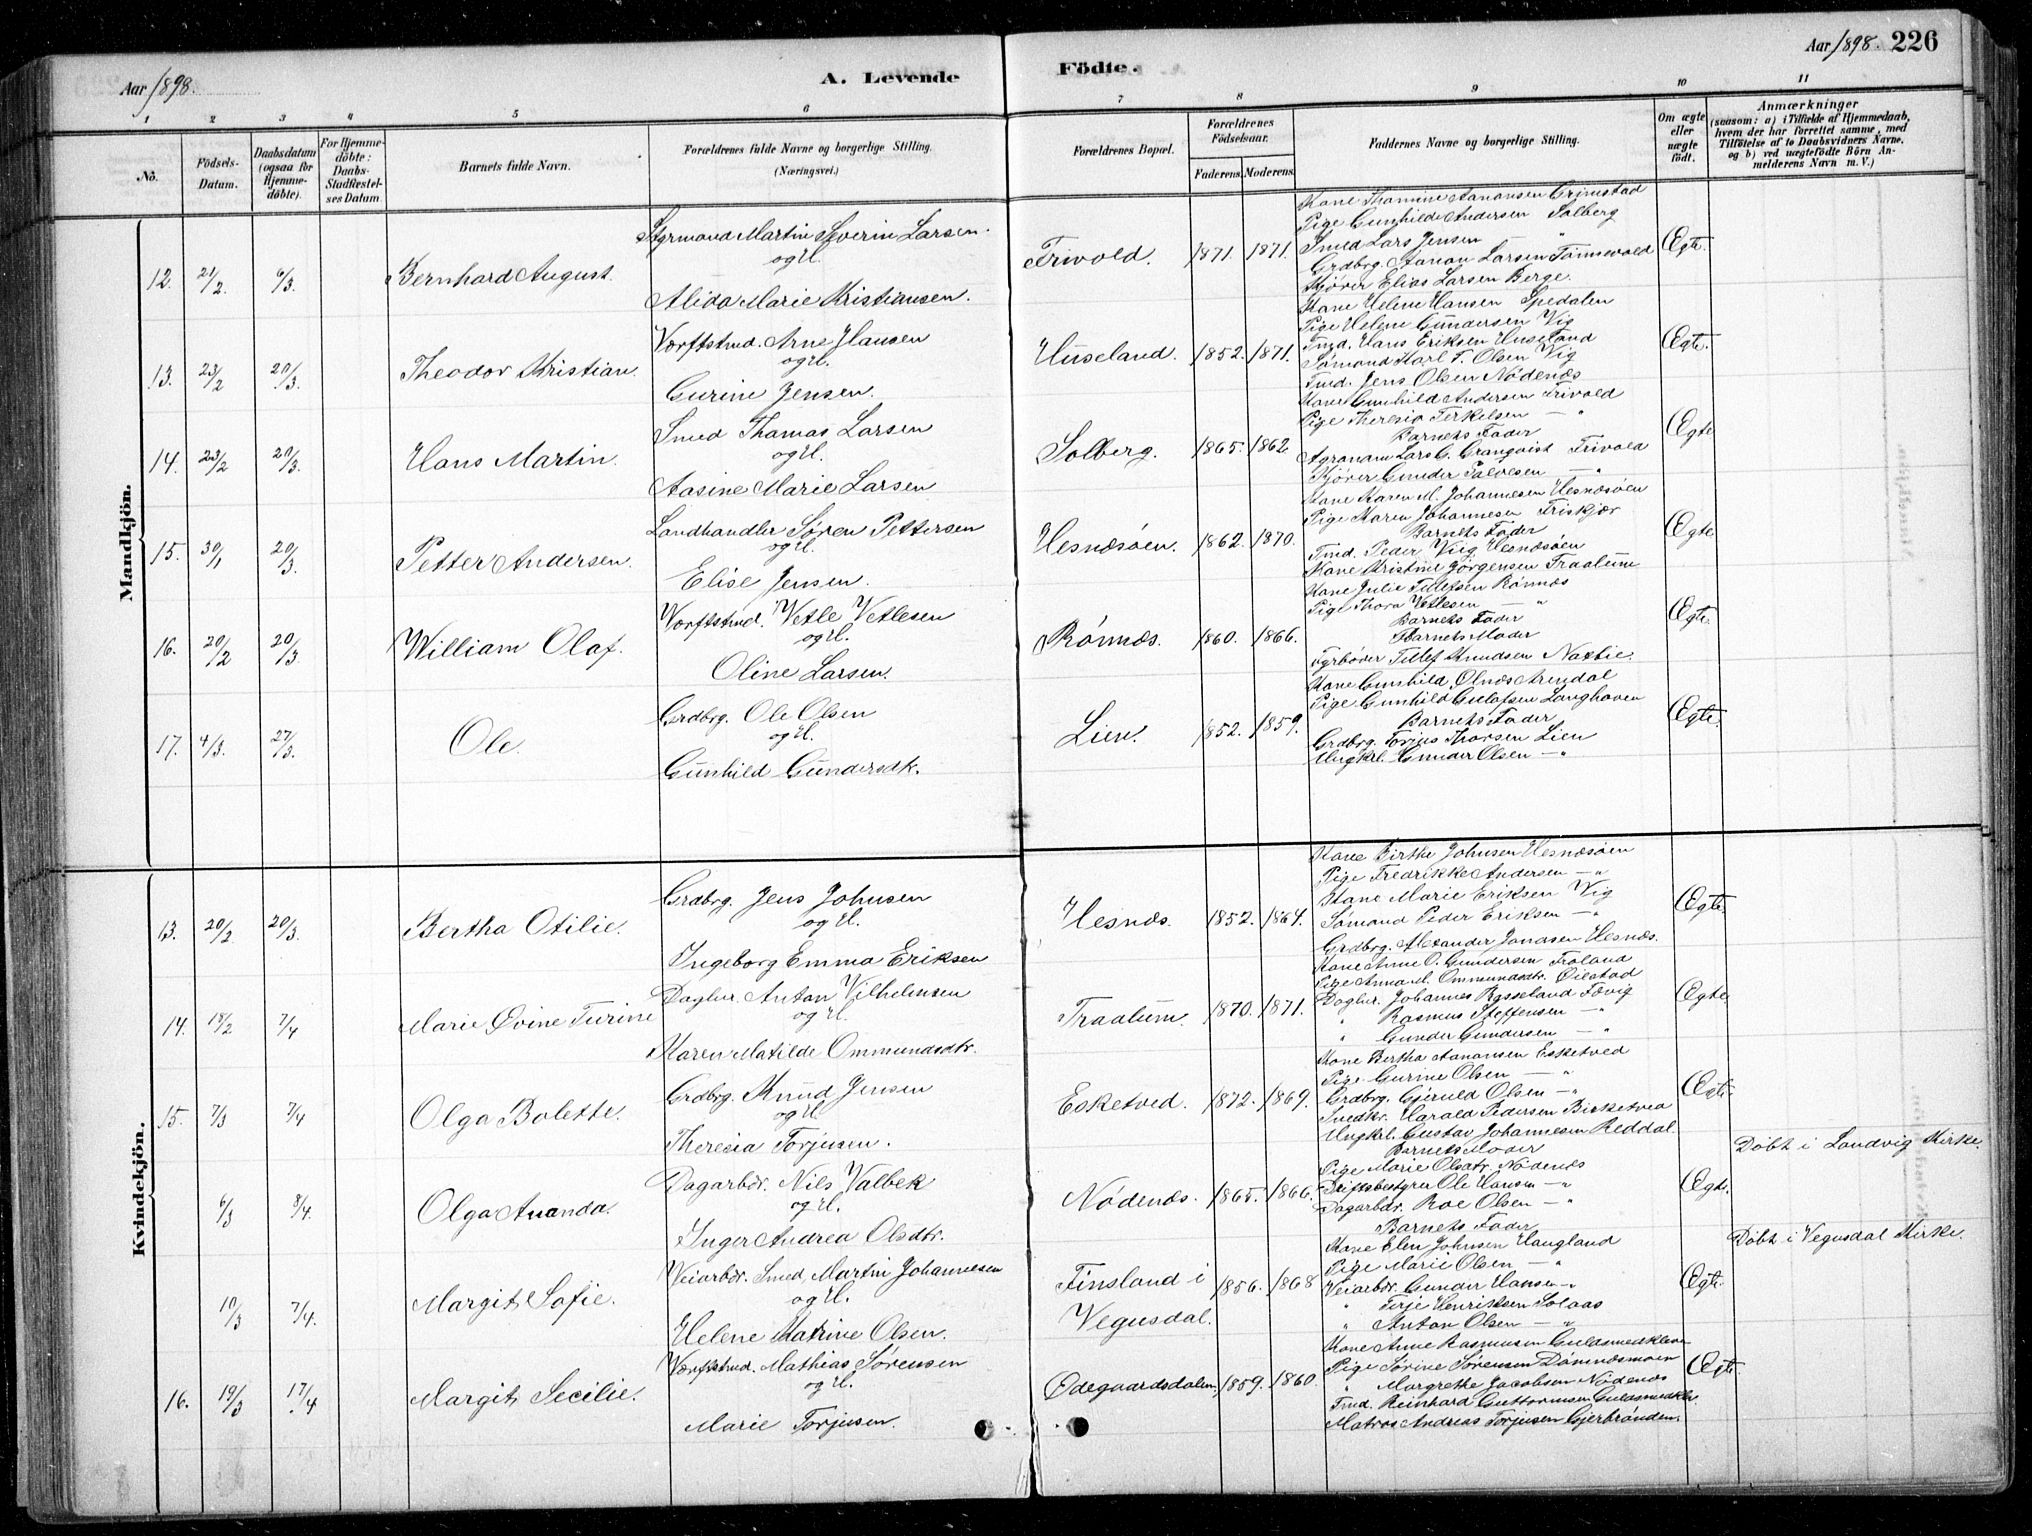 Aar 1898.
A. Levende
Födte.
Aar 1898. 226
1 2 3 4 5 6 7 8 9 10 11
No.
Födsels-Datum.
Daabsdatum (ogsaa for Hjemmedöbte).
For Hjemmedöbte: Daabs-Stadfæstelses Datum
Barnets fulde Navn.
Forældrenes fulde Navne og borgerlige Stilling. (Næringsvei.)
Forældrenes Bopæl.
Forældrenes Födselsaar.
Faderens. Moderens.
Faddernes Navne og borgerlige Stilling.
Om ægte eller uægte födt.
Anmærkninger
(saasom: a) i Tilfælde af Hjemmedaab, hvem der har forrettet samme, med Tilföielse af to Daabsvidners Navne, og b) ved uægtefödte Börn Anmelderens Navn m. V.)
Mandkjön.
12. 21/2. 6/3. Bernhard August.
Styrmand Martin Severin Larsen
og H.
Alida Marie Kristiansen.
Frivold. 1871. 1871.
Kone Thomine Aanonsen Grimstad
Pige Gunhilde Andersen Solberg
Smed Lars Jensen — "
Grdbrg. Aanon Larsen Tönnevold
Kjører Elias Larsen Berge.
Ægte.
13. 23/2 20/3. Theodor Kristian.
Værftstmd. Arne Hansen
og H.
Gurine Jensen.
Huseland. 1852. 1871.
Kone Helene Hansen Spedalen
Pige Helene Gundersen Vig
Tmd. Hans Eriksen Huseland
Sømand Karl T. Olsen Vig
Tmd. Jens Olsen Nódenæs
Ægte.
14. 23/2 20/3. Hans Martin.
Smed Thomas Larsen
og H.
Aasine Marie Larsen
Solberg. 1865. 1862
Kone Gunhild Andersen Frivold
Pige Theresia Terkelsen — "
Barnets Fader
Agronom Lars G. Granqvist Frivold
Kjører Gunder Salvesen — "
Ægte
15. 30/1 20/3. Petter Andersen.
Landhandler Søren Pettersen
og H.
Elise Jensen.
Hesnæsøen. 1862. 1870.
Kone Karen M. Johannesen Hesnæsøen
Pige Karen Johannesen Friskjær
Barnets Fader
Tmd. Peder Viig Hesnæsøen
Kone Kristine Jørgensen Fraalum
Ægte
16. 20/2 20/3 William Olaf.
Værftstmd. Vetle Vetlesen
og H.
Oline Larsen.
Rónnæs. 1860. 1866.
Kone Julie Tellefsen Rónnæs
Pige Thora Vetlesen — "
Barnets Fader
Barnets Moder
Fyrbøter Tellef Knudsen Naxbie.
Ægte.
17. 4/3. 27/3. Ole.
Grdbrg. Ole Olsen
og H.
Gunhild Gundersdtr.
Lien. 1852. 1859.
Kone Gunhild Olnæs Arendal
Pige Gunhild Gulafsen Langhaven
Barnets Fader
Grdbrg. Torjus Thorsen Lien
Ungkrl. Gunder Olsen — "
Ægte.
Kvindekjön.
13. 20/2 20/3. Bertha Otilie.
Grdbrg. Jens Johnsen
og H.
Ingeborg Emma Eriksen
Hesnæs. 1852. 1864.
Kone Birthe Johnsen Hesnæsøen
Pige Fredrikke Andersen — "
Kone Marie Eriksen Vig
Sømand Peder Eriksen — "
Grdbrg. Alexander Jonasen Hesnæs.
Ægte.
14. 18/2 7/4 Marie Øvine Turine
Daglnr. Anton Vilhelmsen
og H.
Karen Matilde Ommundsdtr.
Traalum. 1870. 1871.
Kone Anne O. Gundersen Froland
Pige Anna M. Ommundsdtr. Oiestad
Daglnr. Johannes Rosseland Fævig
" Rasmus Steffensen — "
" Gunder Gundersen — "
Ægte.
15. 7/3 7/4 Olga Bolette.
Grdbrg. Knud Jensen
og H.
Theresia Torjusen.
Esketved. 1872. 1869.
Kone Bertha Aanonsen Esketved
Pige Gurine Olsen — "
Grdbrg. Gjeruld Olsen — "
Smedkr. Harald Pedersen Birketved
Ungkrl. Gustav Johannesen Reddal.
Ægte.
6/3 8/4. Olga Ananda.
Dagarbdr. Nils Valbek
og H.
Inger Andrea Olsdtr.
Nódenæs. 1865. 1866.
Barnets Moder
Pige Marie Olsdtr. Nódenæs
Driftsbestyrer Ole Hansen — "
Dagarbdr. Roe Olsen — "
Barnets Fader
Ægte.
Döbt i Landvig Kirke.
10/3 7/4. Margit Sofie.
Veiarbdr. Smed Martin Johannesen
og H.
Helene Katrine Olsen.
Finsland i Vegusdal. 1856. 1868
Kone Elen Johnsen Haugland
Pige Marie Olsen — "
Veiarbdr. Gunder Hansen — "
" Terje Henriksen Solaas
" Anton Olsen — "
Ægte.
Döbt i Vegusdal Kirke.
16. 19/3 17/4 Margit Secilie.
Værftstmd. Mathias Sørensen
og H.
Marie Torjusen.
Ødegaardsdalen. 1859. 1860.
Kone Anne Rasmusen Guldsmedkleven
Pige Sørine Sørensen Dømnæsmoen
" Margrethe Jacobsen Nódenæs
Tmd. Reinhard Guttormsen Guldsmedklev.
Matros Andreas Torjusen Gjerbrønden.
Ægte.